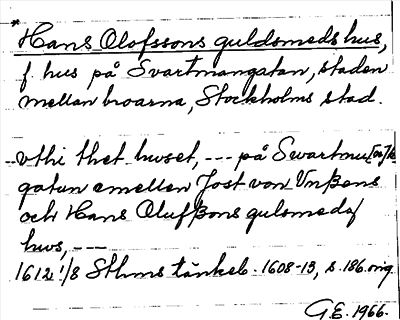 *
Hans Olofssons guldsmeds hus,
f. hus på Svartmangatan, staden
mellan broarna, Stockholms stad.
vthi thet huset, --- på Swartmu[n]ke
gatun emellen Jost von Vnßens
och Hans Olufßons gulsmeds
huus, ---
1612 1/8 Sthms tänkeb. 1608-13, s. 186. orig
G.E. 1966.